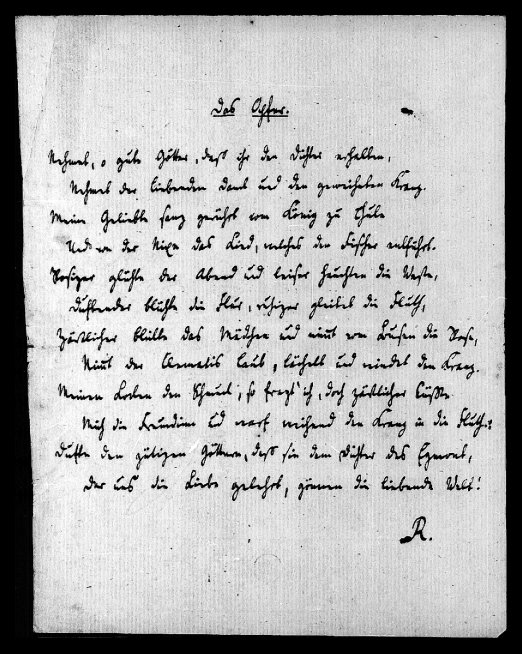 Das Opfer.
Nehmet, o gute Götter, daß ihr den Dichter erhalten,
Nehmet der liebenden Dank und den geweiheten Kranz.
Meine Geliebte sang gerührt vom König zu Thule
Und von der Nixe das Lied, welches den Fischer entführt.
Rosiger glühte der Abend und leiser hauchten die Weste,
Duftender blühte die Flur, ruhiger gleitet die Fluth,
Zärtlicher blickte das Mädchen und nimt vom Busen die Rose,
Nimt der Clematis Laub, lächelt und windet den Kranz.
Meinen Locken den Schmuck, so fragt' ich, doch zärtlicher küßte
Mich die Freundinn und warf weihend den Kranz in die Fluth:
Dufte den gütigen Göttern, daß sie dem Dichter des Egmont,
Der uns die Liebe gelehrt, gönnen die liebende Welt!
R.